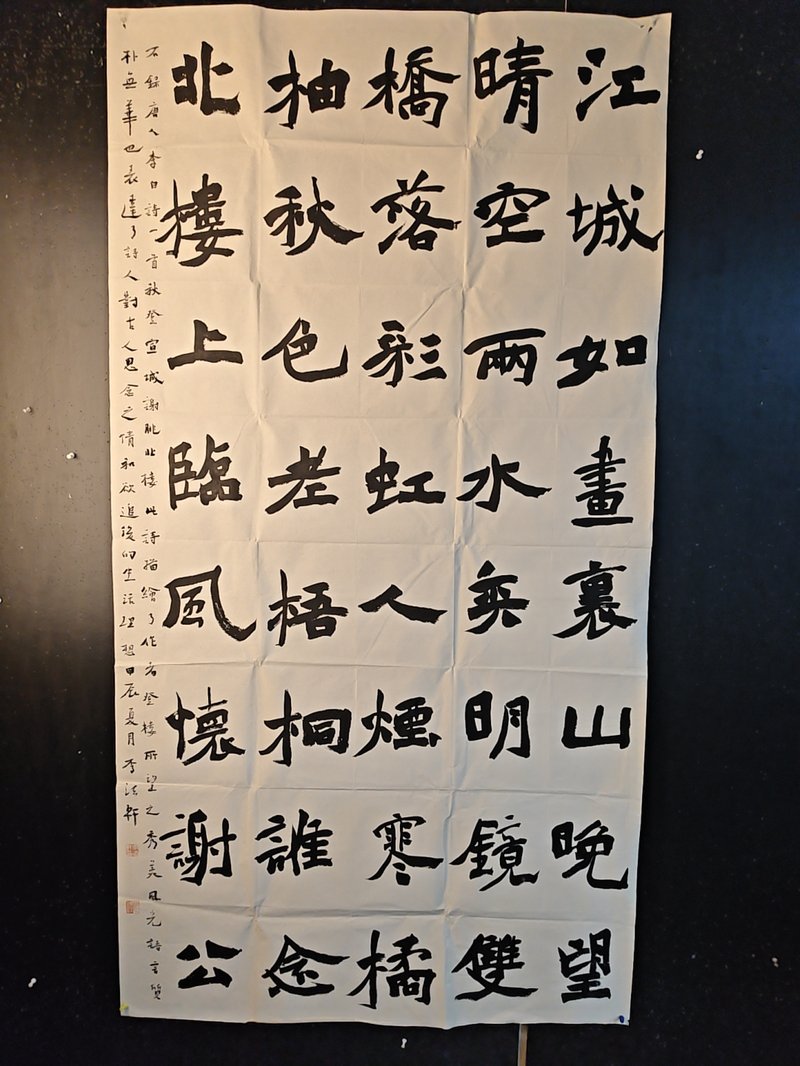 江城如畫裏山晚望
晴空兩水夾明鏡雙
橋落彩虹人煙寒橘
柚秋色老梧桐誰念
北樓上臨風懷謝公
右錄唐人李白詩一首秋登宣城謝朓北樓此詩描繪了作者登樓所望之秀美風光語言質
朴無華也表達了詩人對古人思念之情和欲追後的生活理想甲辰夏月李法軒